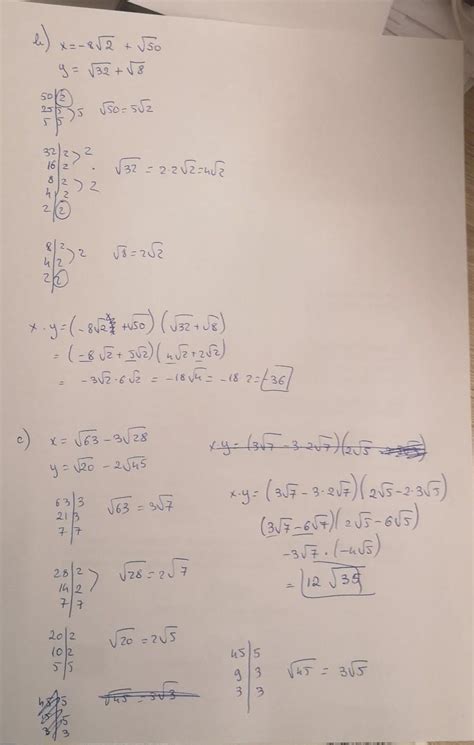 b) x=-8√2 + √50
y = √32 + √8
50|2
25|5
5|5 >5 √50=5√2
32|2
16|2 >2
8|2
4|2 >2
2|2 · √32 = 2·2√2=4√2
8|2
4|2 >2
2|2 √8=2√2
x·y=(-8√2 +√50)(√32+√8)
= (-8√2+5√2)(4√2+2√2)
= -3√2·6√2 = -18√4= -18·2= -36
c) x = √63 -3√28
y = √20 - 2√45
63|3
21|3
7|7 √63=3√7
28|2
14|2
7|7 √28=2√7
20|2
10|2
5|5 √20=2√5
45|5
√45=3√3
x·y=(3√7-3·2√7)(2√5
x·y=(3√7-3·2√7)(2√5-2·3√5)
(3√7-6√7)(2√5-6√5)
-3√7·(-4√5)
= 12√35
45|5
9|3
3|3 √45 = 3√5